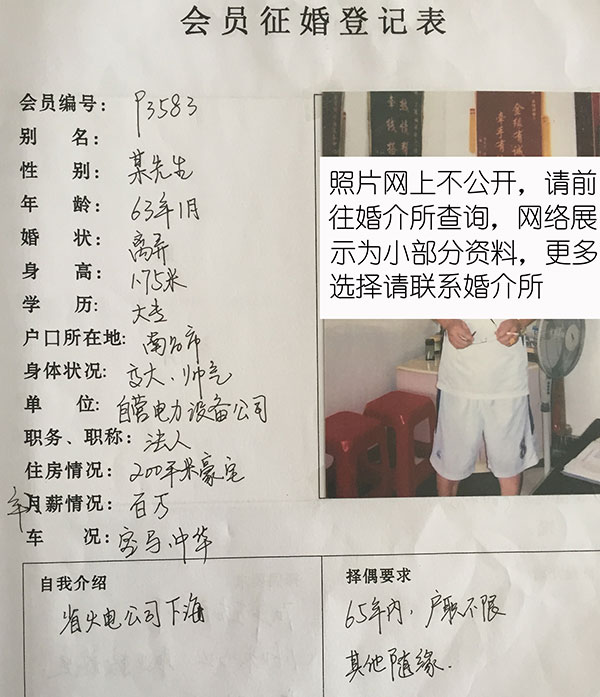 会员征婚登记表
会员编号： P3583
别 名：
性 别： 某先生
年 龄： 63年1月
婚 状： 离异
身 高： 1.75米
学 历： 大专
户口所在地： 南昌市
身体状况： 高大、帅气
单 位： 自营电力设备公司
职务、职称： 法人
住房情况： 200平米豪宅
年月薪情况： 百万
车 况： 宝马、中华
照片网上不公开，请前
往婚介所查询，网络展
示为小部分资料，更多
选择请联系婚介所
自我介绍
省火电公司下海
择偶要求
65年内，户职不限
其他随缘.